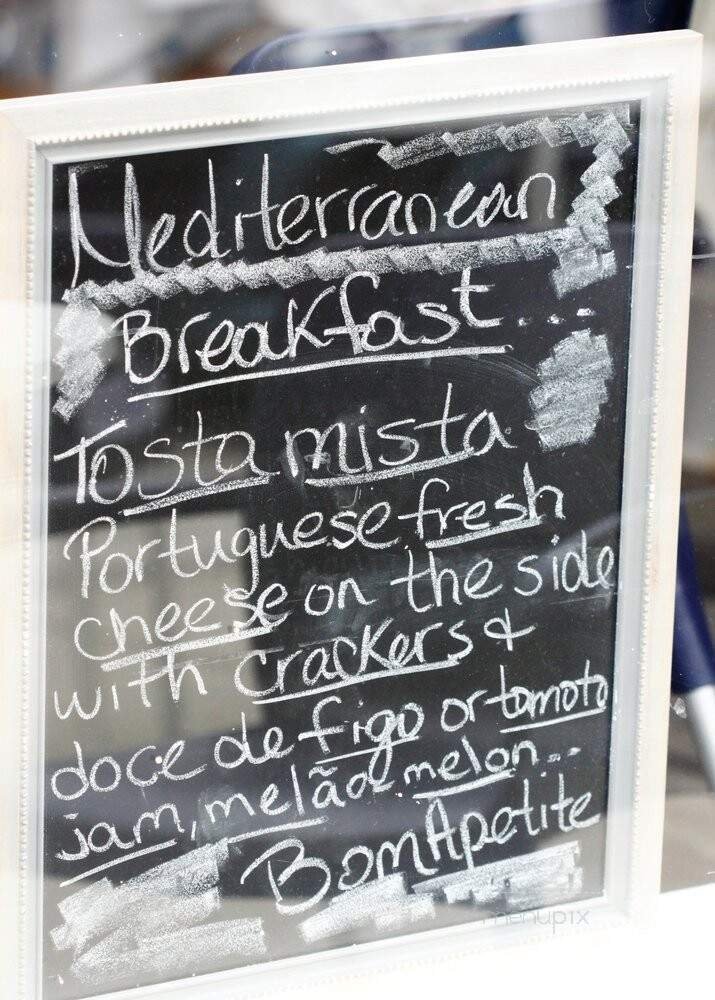 Mediterranean
Breakfast...
Tosta mista.
Portuguese fresh
cheese on the side
with crackers &
doce de figo or tomoto
jam, melão-melon...
Bom Apetite
menupix